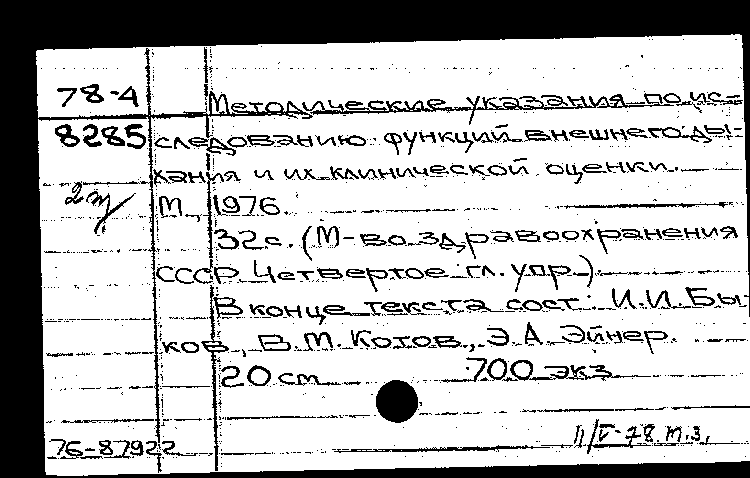 78-4 Методические указания по ис-
8285 следованию функций внешнего ды-
хания и их клинической оценки.
2 М., 1976.
32с. (М-во здравоохранения
СССР. Четвертое гл. упр.).
В конце текста сост: И.И. Бы-
ков, В.М. Котов, Э.А. Эйнер.
20 см 700 экз
76-87922 11/V-78 т.з.